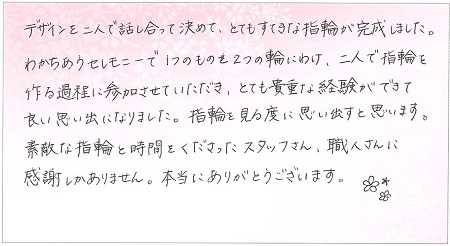 デザインを二人で話し合って決めて、とてもすてきな指輪が完成しました。
わかちあうセレモニーで1つのものを2つの輪にわけ、二人で指輪を
作る過程に参加させていただき、とても貴重な経験ができて
良い思い出になりました。指輪を見る度に思い出すと思います。
素敵な指輪と時間をくださったスタッフさん、職人さんに
感謝しかありません。本当にありがとうございます。